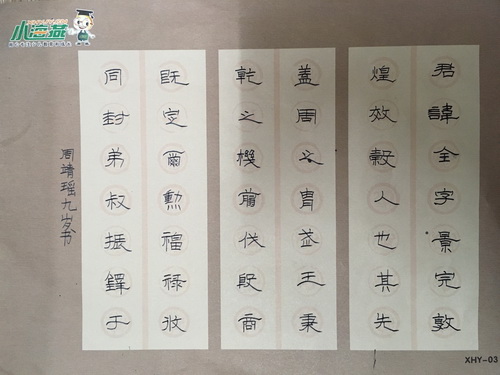 小海燕
君諱全字景完敦
煌效穀人也其先
蓋周之胄武王秉
乾之機翦伐殷商
既定爾勳福祿攸
同封弟叔振鐸于
周靖瑶九岁书
XHY-03